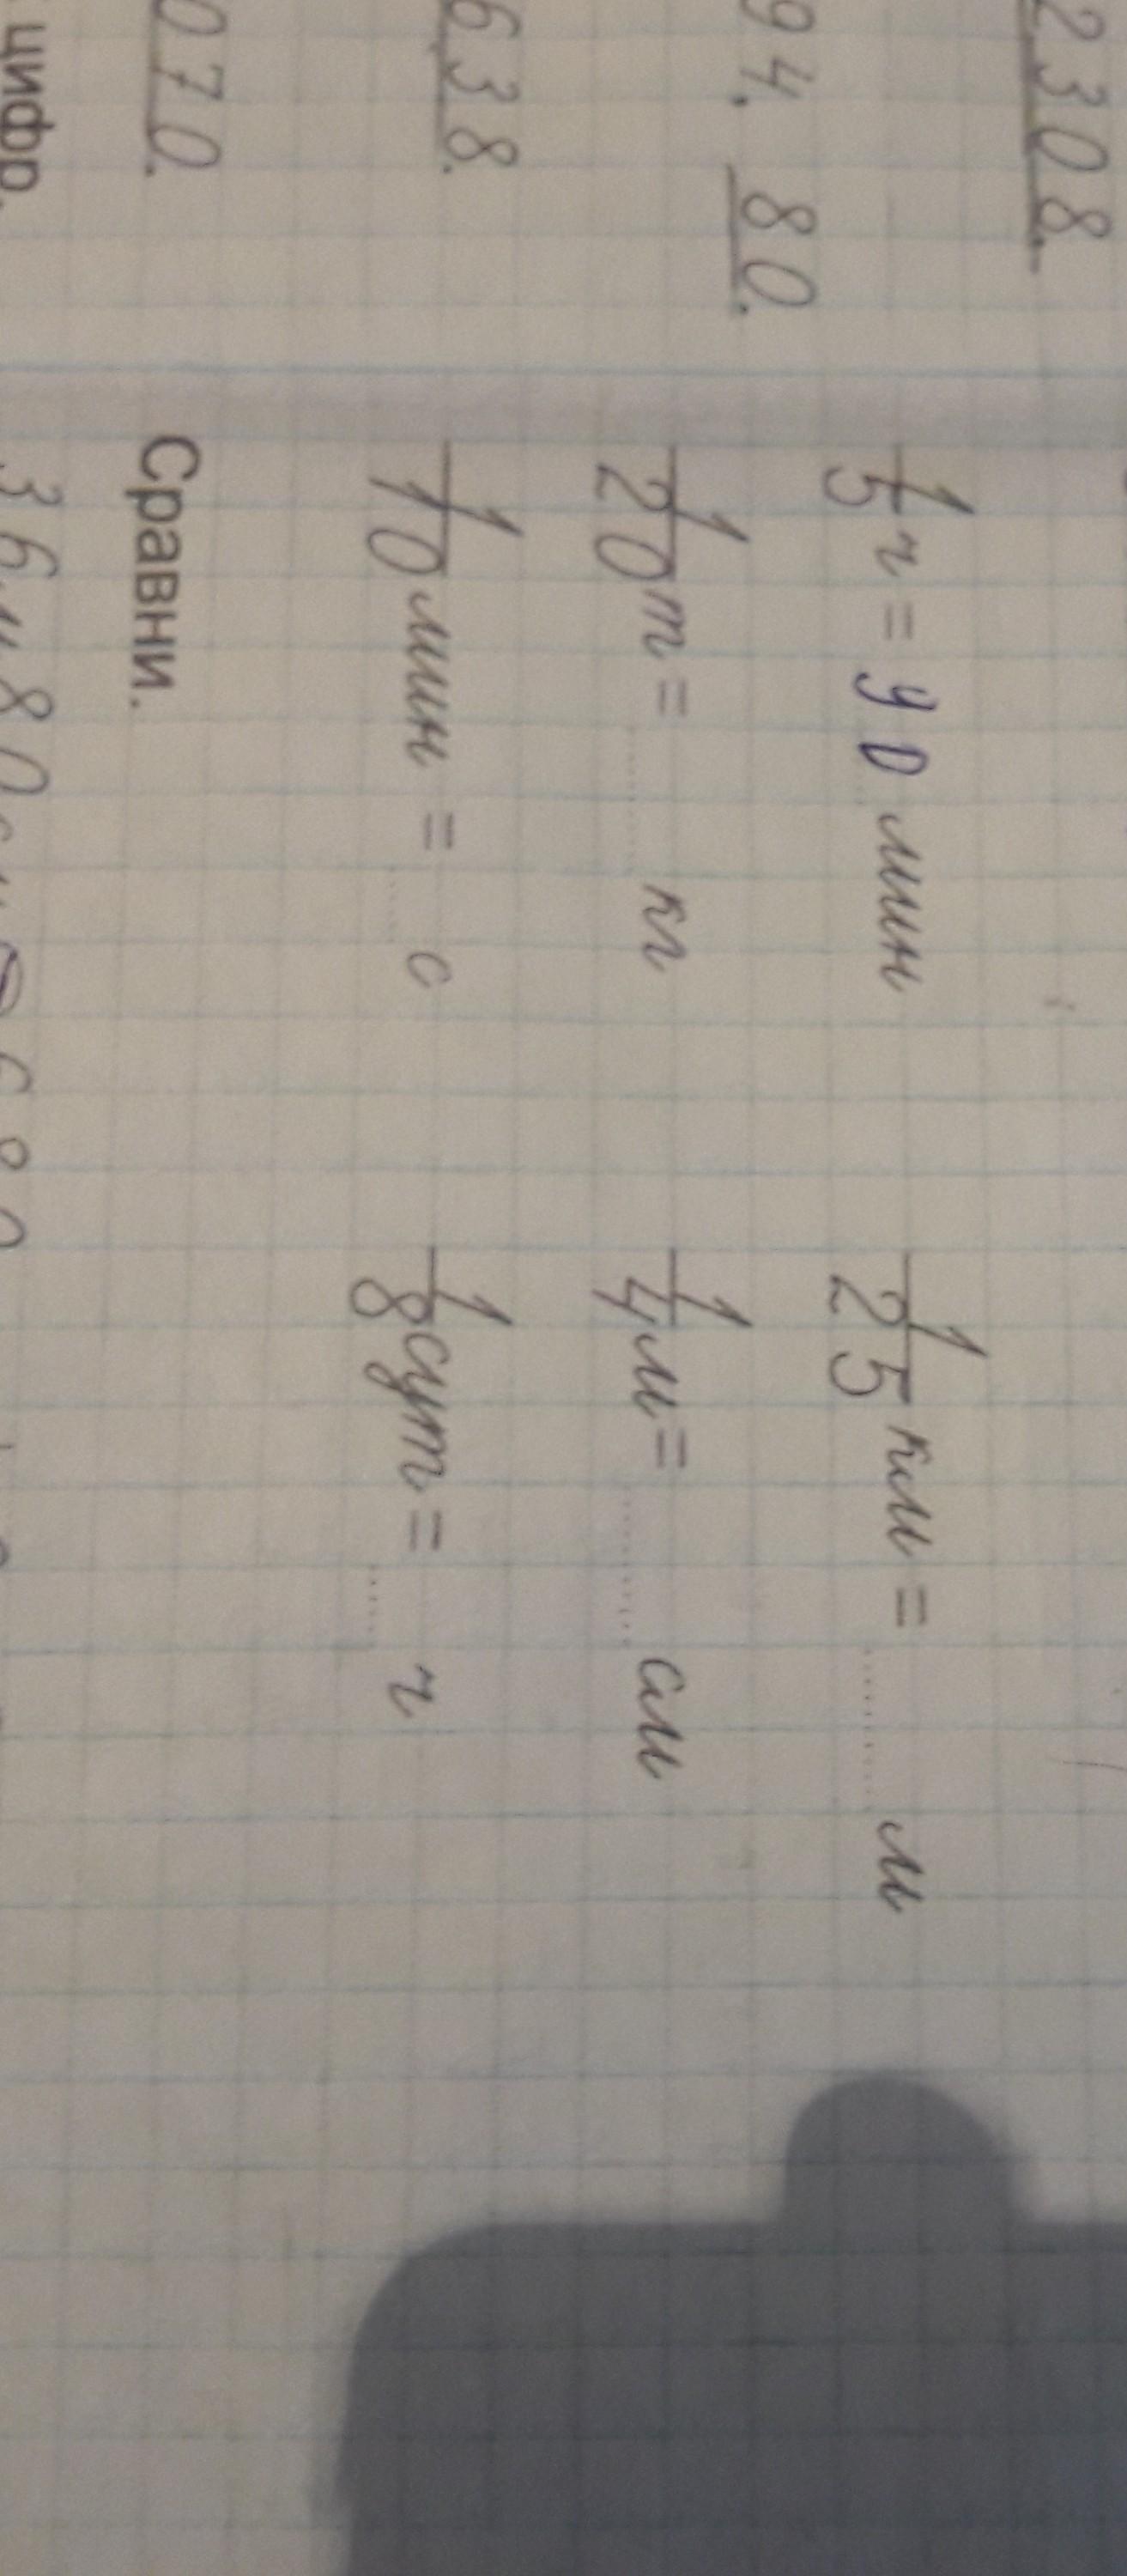 2308.
1/5 ч = 90 мин
1/25 км = ........ м
94. 80.
1/20 т = ........ кг
1/4 м = ........ см
638.
1/10 мин = ..... с
1/8 сут = ..... ч
070.
Сравни.
цифр.
36 м 80 см